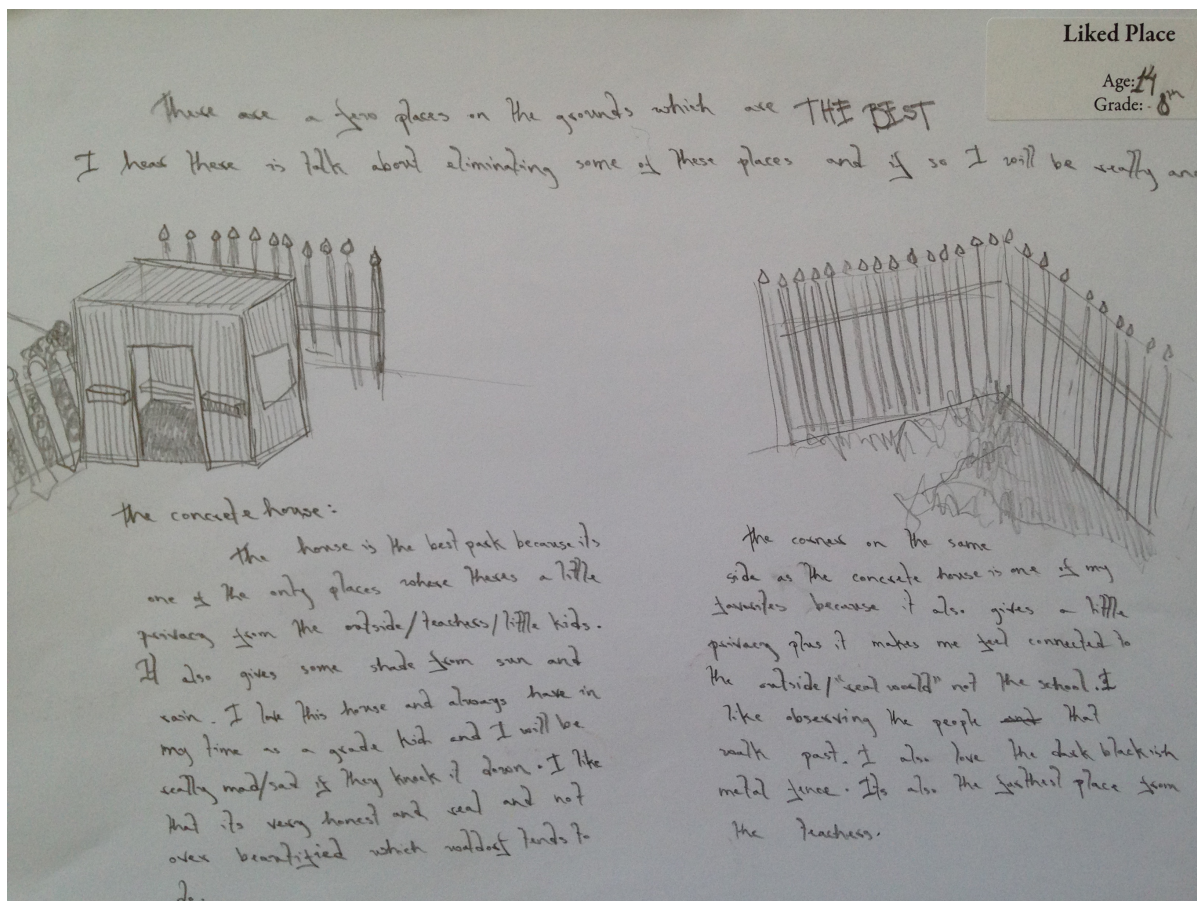 Liked Place
Age: 14
Grade: 8th
There are a few places on the grounds which are THE BEST
I hear there is talk about eliminating some of these places and if so I will be really
the concrete house:
the house is the best park because its
one of the only places where theres a little
privacy from the outside/teachers/little kids.
It also gives some shade from sun and
rain. I love this house and always have in
my time as a grade kid and I will be
really mad/sad if they knock it down. I like
that its very honest and real and not
over beautified which waldorf tends to
do.
the corner on the same
side as the concrete house is one of my
favorites because it also gives a little
privacy plus it makes me feel connected to
the outside/"real world" not the school. I
like observing the people that
walk past. I also love the dark blackish
metal fence. Its also the farthest place from
the teachers.